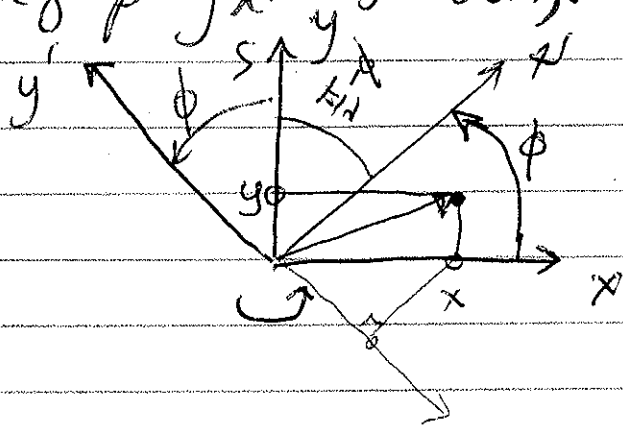 S y
y'
φ
π/2-φ
x'
φ
y
x
x